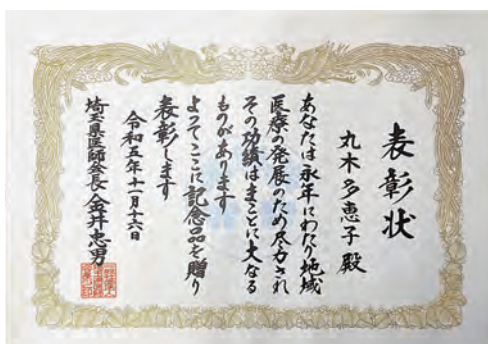 表彰状
丸木多恵子殿
あなたは永年にわたり地域
医療の発展のため尽力され
その功績はまことに大なる
ものがあります
よってここに記念品を贈り
表彰します
令和五年十一月十六日
埼玉県医師会長 金井忠男